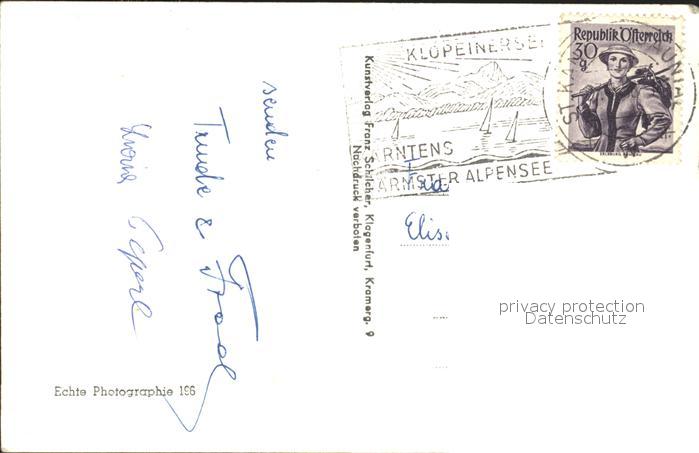 KLOPEINERSEE
KÄRNTENS
WÄRMSTER ALPENSEE
Republik Österreich
30
g
ST. KANZIAN
Kunstverlag Franz Schilcher, Klagenfurt, Kramerg. 9
Nachdruck verboten
senden
Trude &
Elis
privacy protection
Datenschutz
Echte Photographie 196